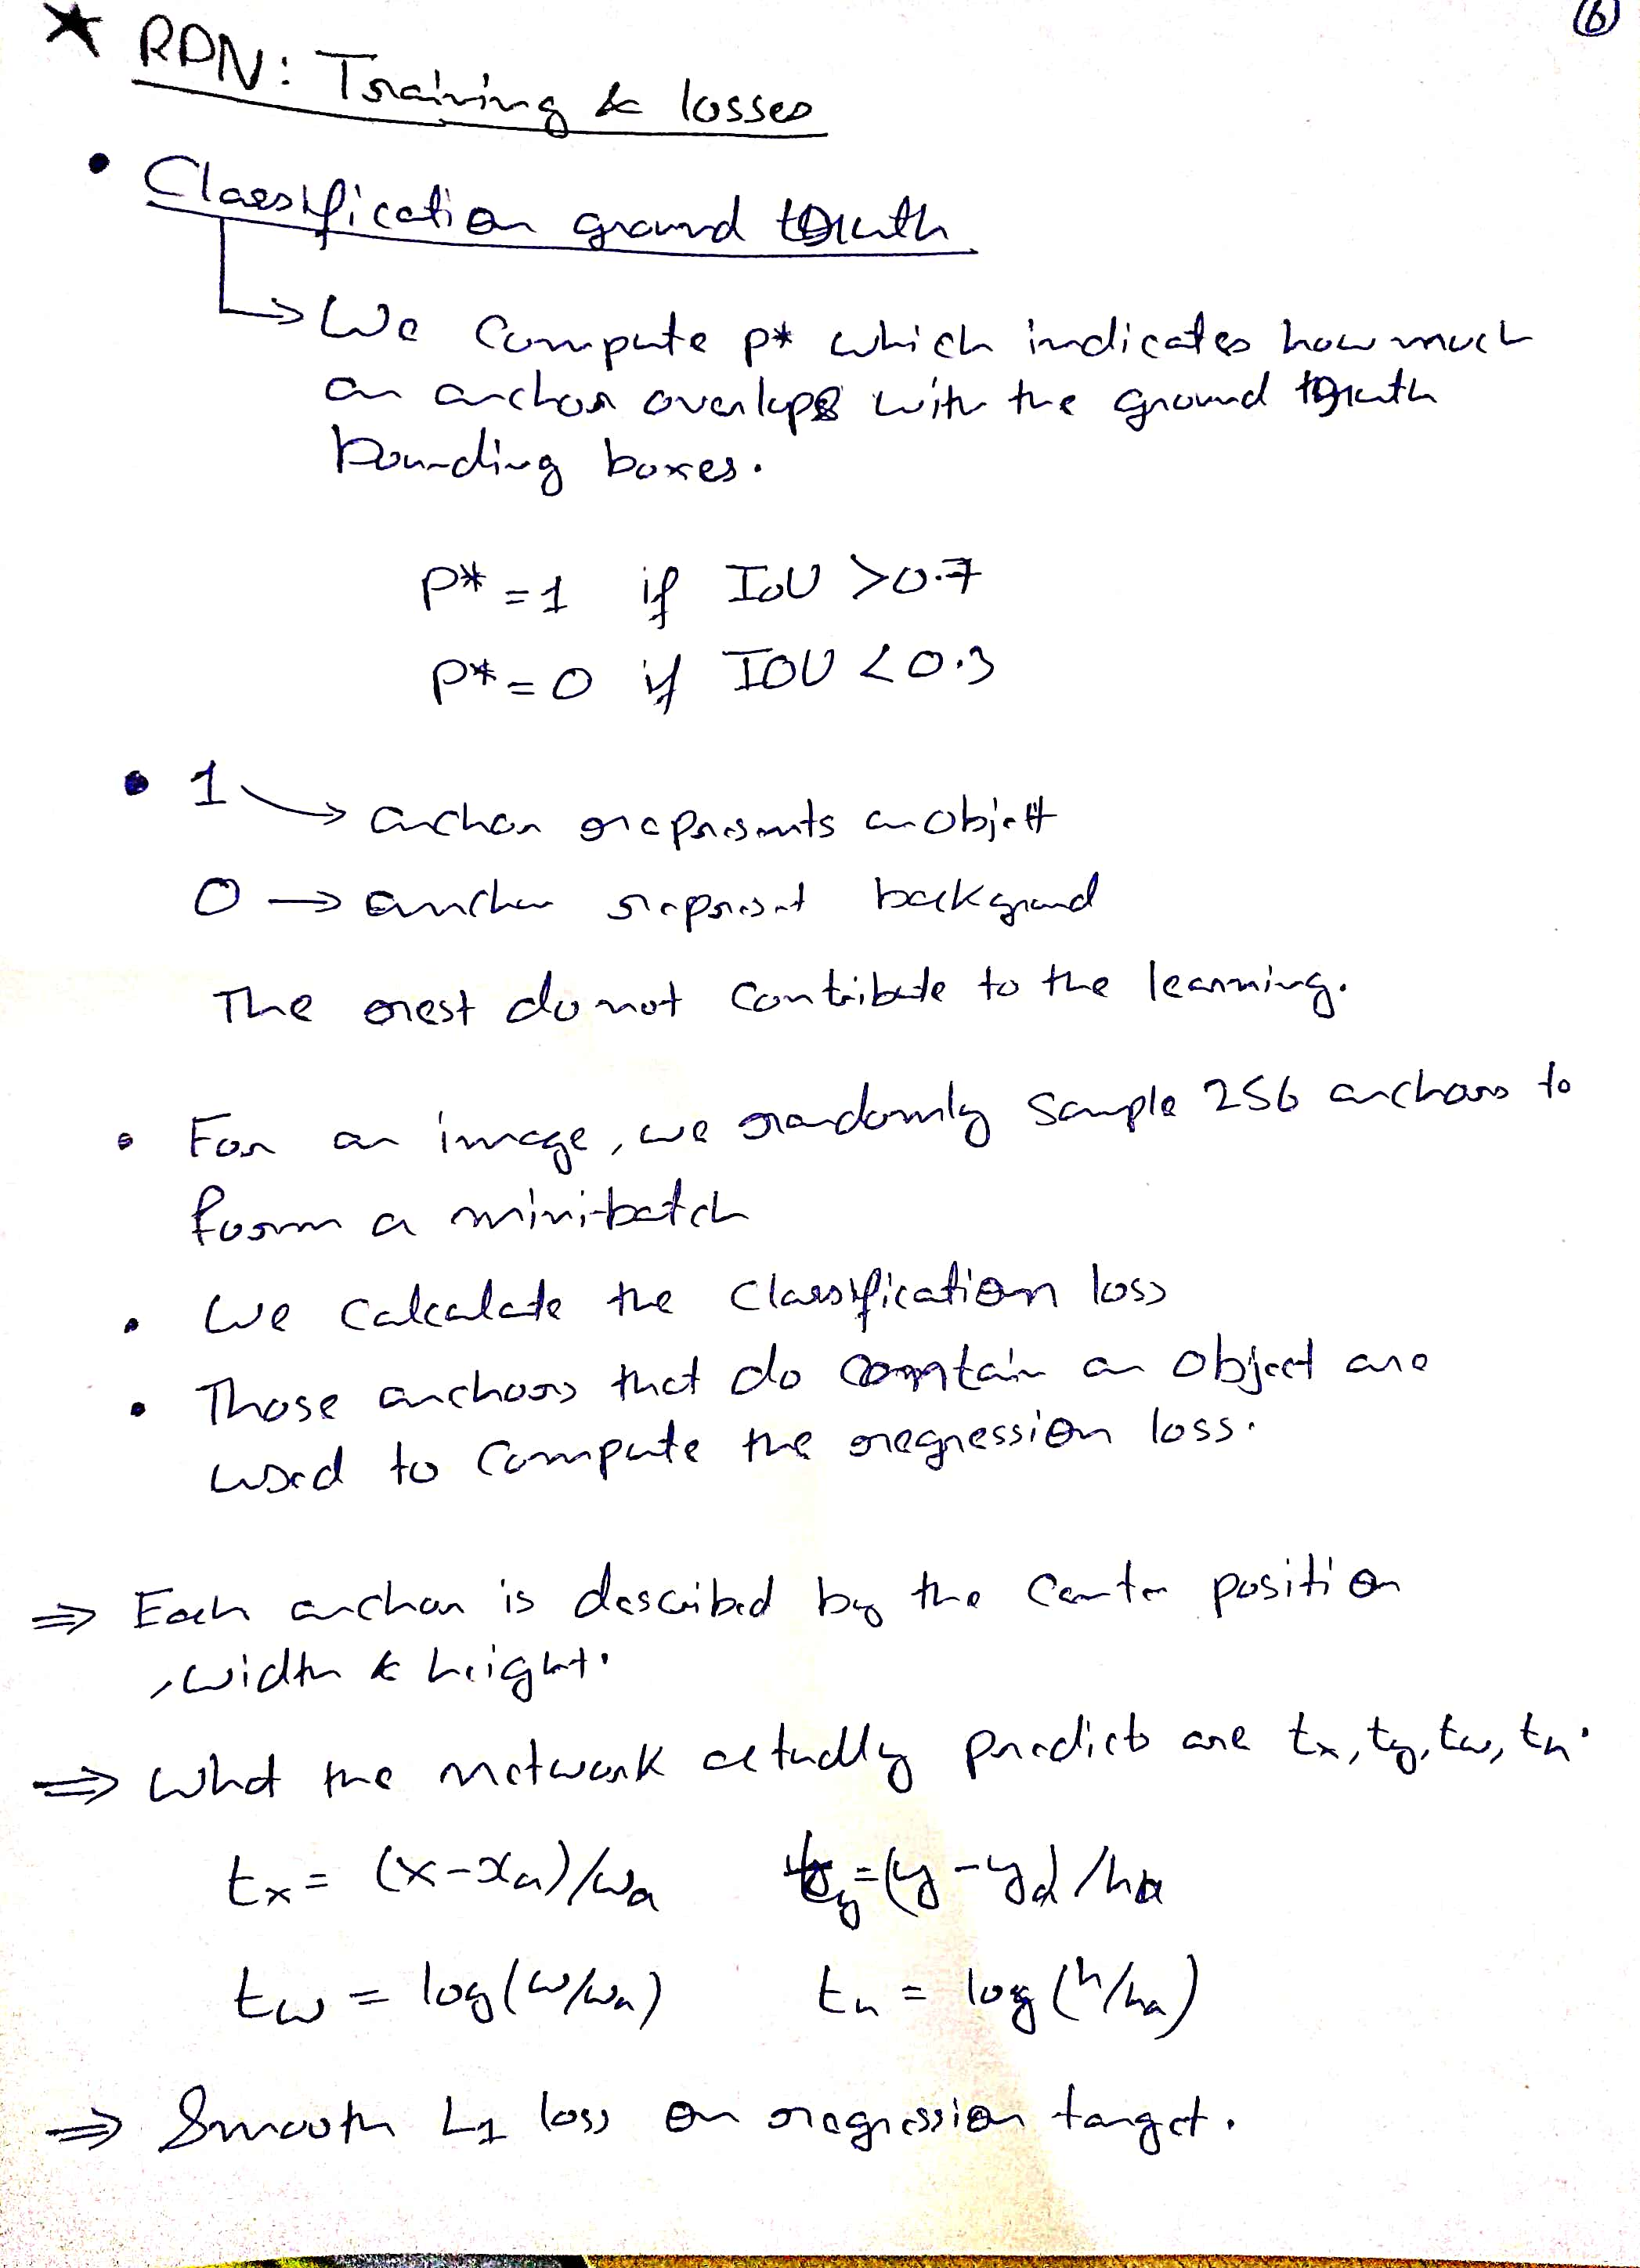 6
★ RPN: Training & losses
• Classification ground truth
↳ We compute p* which indicates how much
an anchor overlaps with the ground truth
bounding boxes.
p* = 1 if IoU > 0.7
p* = 0 if IOU < 0.3
• 1 → anchor represents an object
0 → anchor represent background
The rest do not contribute to the learning.
• For an image, we randomly sample 256 anchors to
form a mini-batch
• We calculate the classification loss
• Those anchors that do contain an object are
used to compute the regression loss.
⇒ Each anchor is described by the center position
, width & height.
⇒ What the network actually predicts are tx, ty, tw, th.
tx = (x-xa)/wa ty = (y-ya)/ha
tw = log(w/wa) th = log(h/ha)
⇒ Smooth L1 loss on regression target.